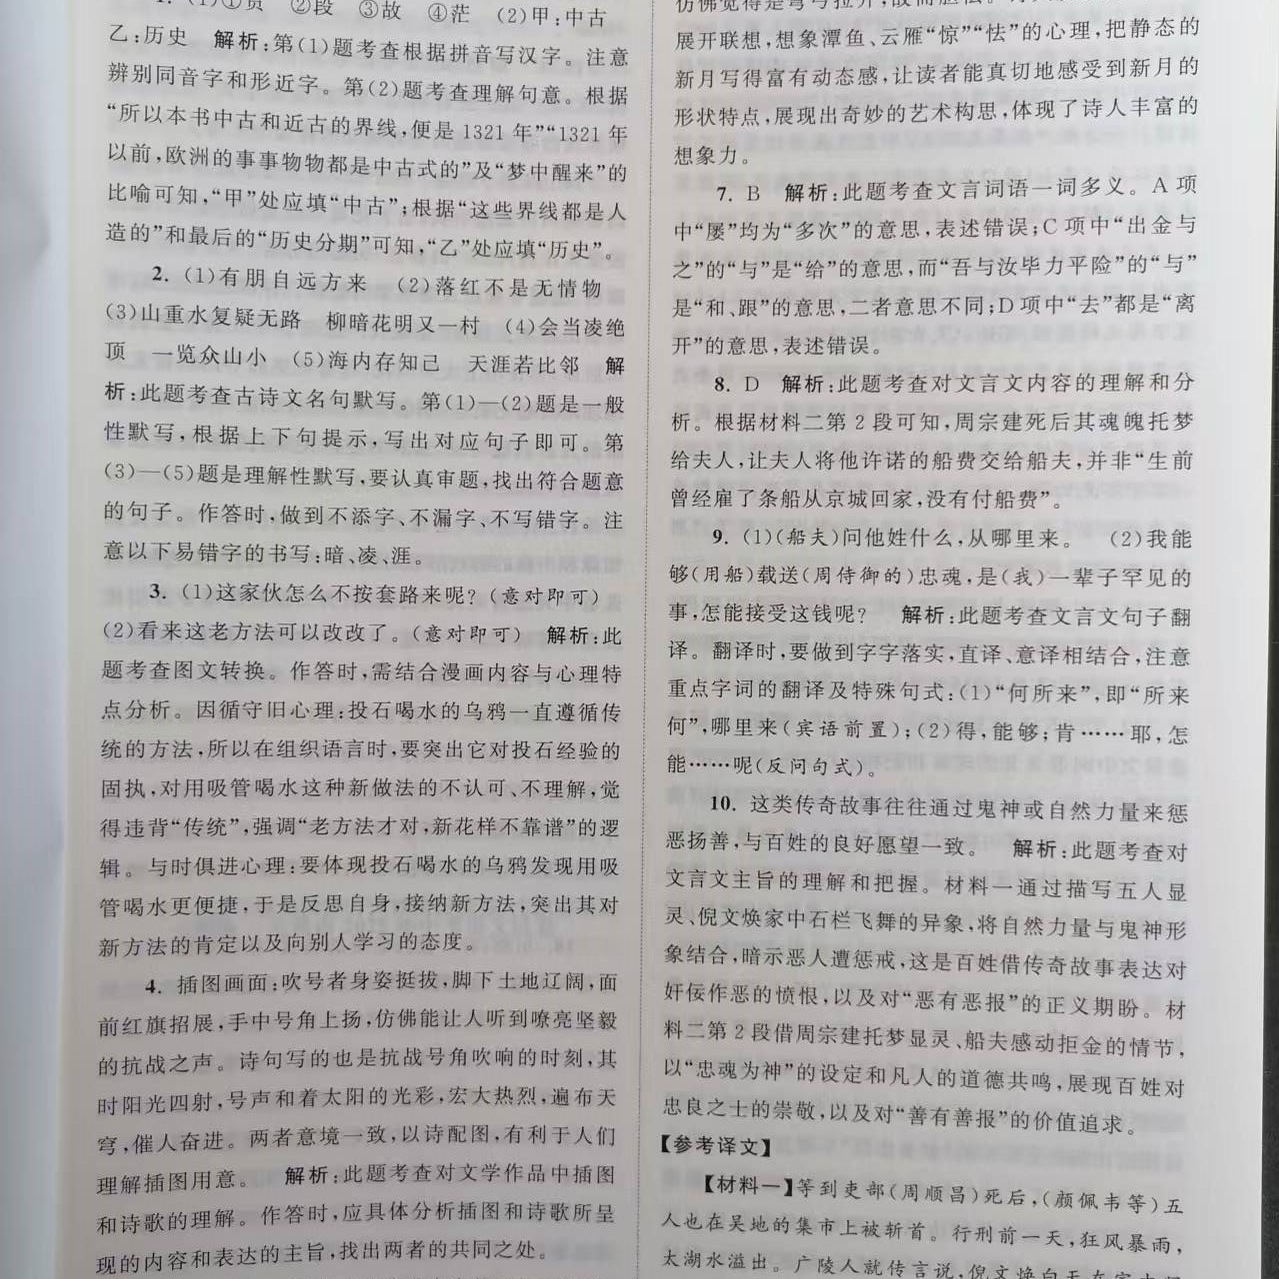 1. (1)①贡 ②段 ③故 ④茫 (2)甲:中古
乙:历史 解析:第(1)题考查根据拼音写汉字。注意
辨别同音字和形近字。第(2)题考查理解句意。根据
“所以本书中古和近古的界线,便是 1321 年”“1321 年
以前,欧洲的事事物物都是中古式的”及“梦中醒来”的
比喻可知,“甲”处应填“中古”;根据“这些界线都是人
造的”和最后的“历史分期”可知,“乙”处应填“历史”。
2. (1)有朋自远方来 (2)落红不是无情物
(3)山重水复疑无路 柳暗花明又一村 (4)会当凌绝
顶 一览众山小 (5)海内存知己 天涯若比邻 解
析:此题考查古诗文名句默写。第(1)—(2)题是一般
性默写,根据上下句提示,写出对应句子即可。第
(3)—(5)题是理解性默写,要认真审题,找出符合题意
的句子。作答时,做到不添字、不漏字、不写错字。注
意以下易错字的书写:暗、凌、涯。
3. (1)这家伙怎么不按套路来呢?(意对即可)
(2)看来这老方法可以改改了。(意对即可) 解析:此
题考查图文转换。作答时,需结合漫画内容与心理特
点分析。因循守旧心理:投石喝水的乌鸦一直遵循传
统的方法,所以在组织语言时,要突出它对投石经验的
固执,对用吸管喝水这种新做法的不认可、不理解,觉
得违背“传统”,强调“老方法才对,新花样不靠谱”的逻
辑。与时俱进心理:要体现投石喝水的乌鸦发现用吸
管喝水更便捷,于是反思自身,接纳新方法,突出其对
新方法的肯定以及向别人学习的态度。
4. 插图画面:吹号者身姿挺拔,脚下土地辽阔,面
前红旗招展,手中号角上扬,仿佛能让人听到嘹亮坚毅
的抗战之声。诗句写的也是抗战号角吹响的时刻,其
时阳光四射,号声和着太阳的光彩,宏大热烈,遍布天
穹,催人奋进。两者意境一致,以诗配图,有利于人们
理解插图用意。 解析:此题考查对文学作品中插图
和诗歌的理解。作答时,应具体分析插图和诗歌所呈
现的内容和表达的主旨,找出两者的共同之处。
展开联想,想象潭鱼、云雁“惊”“怯”的心理,把静态的
新月写得富有动态感,让读者能真切地感受到新月的
形状特点,展现出奇妙的艺术构思,体现了诗人丰富的
想象力。
7. B 解析:此题考查文言词语一词多义。A 项
中“屡”均为“多次”的意思,表述错误;C 项中“出金与
之”的“与”是“给”的意思,而“吾与汝毕力平险”的“与”
是“和、跟”的意思,二者意思不同;D 项中“去”都是“离
开”的意思,表述错误。
8. D 解析:此题考查对文言文内容的理解和分
析。根据材料二第 2 段可知,周宗建死后其魂魄托梦
给夫人,让夫人将他许诺的船费交给船夫,并非“生前
曾经雇了条船从京城回家,没有付船费”。
9. (1)(船夫)问他姓什么,从哪里来。 (2)我能
够(用船)载送(周侍御的)忠魂,是(我)一辈子罕见的
事,怎能接受这钱呢? 解析:此题考查文言文句子翻
译。翻译时,要做到字字落实,直译、意译相结合,注意
重点字词的翻译及特殊句式:(1)“何所来”,即“所来
何”,哪里来(宾语前置);(2)得,能够;肯……耶,怎
能……呢(反问句式)。
10. 这类传奇故事往往通过鬼神或自然力量来惩
恶扬善,与百姓的良好愿望一致。 解析:此题考查对
文言文主旨的理解和把握。材料一通过描写五人显
灵、倪文焕家中石栏飞舞的异象,将自然力量与鬼神形
象结合,暗示恶人遭惩戒,这是百姓借传奇故事表达对
奸佞作恶的愤恨,以及对“恶有恶报”的正义期盼。材
料二第 2 段借周宗建托梦显灵、船夫感动拒金的情节,
以“忠魂为神”的设定和凡人的道德共鸣,展现百姓对
忠良之士的崇敬,以及对“善有善报”的价值追求。
【参考译文】
【材料一】等到吏部(周顺昌)死后,(颜佩韦等)五
人也在吴地的集市上被斩首。行刑前一天,狂风暴雨,
太湖水溢出。广陵人就传言说,倪文焕白天在家中